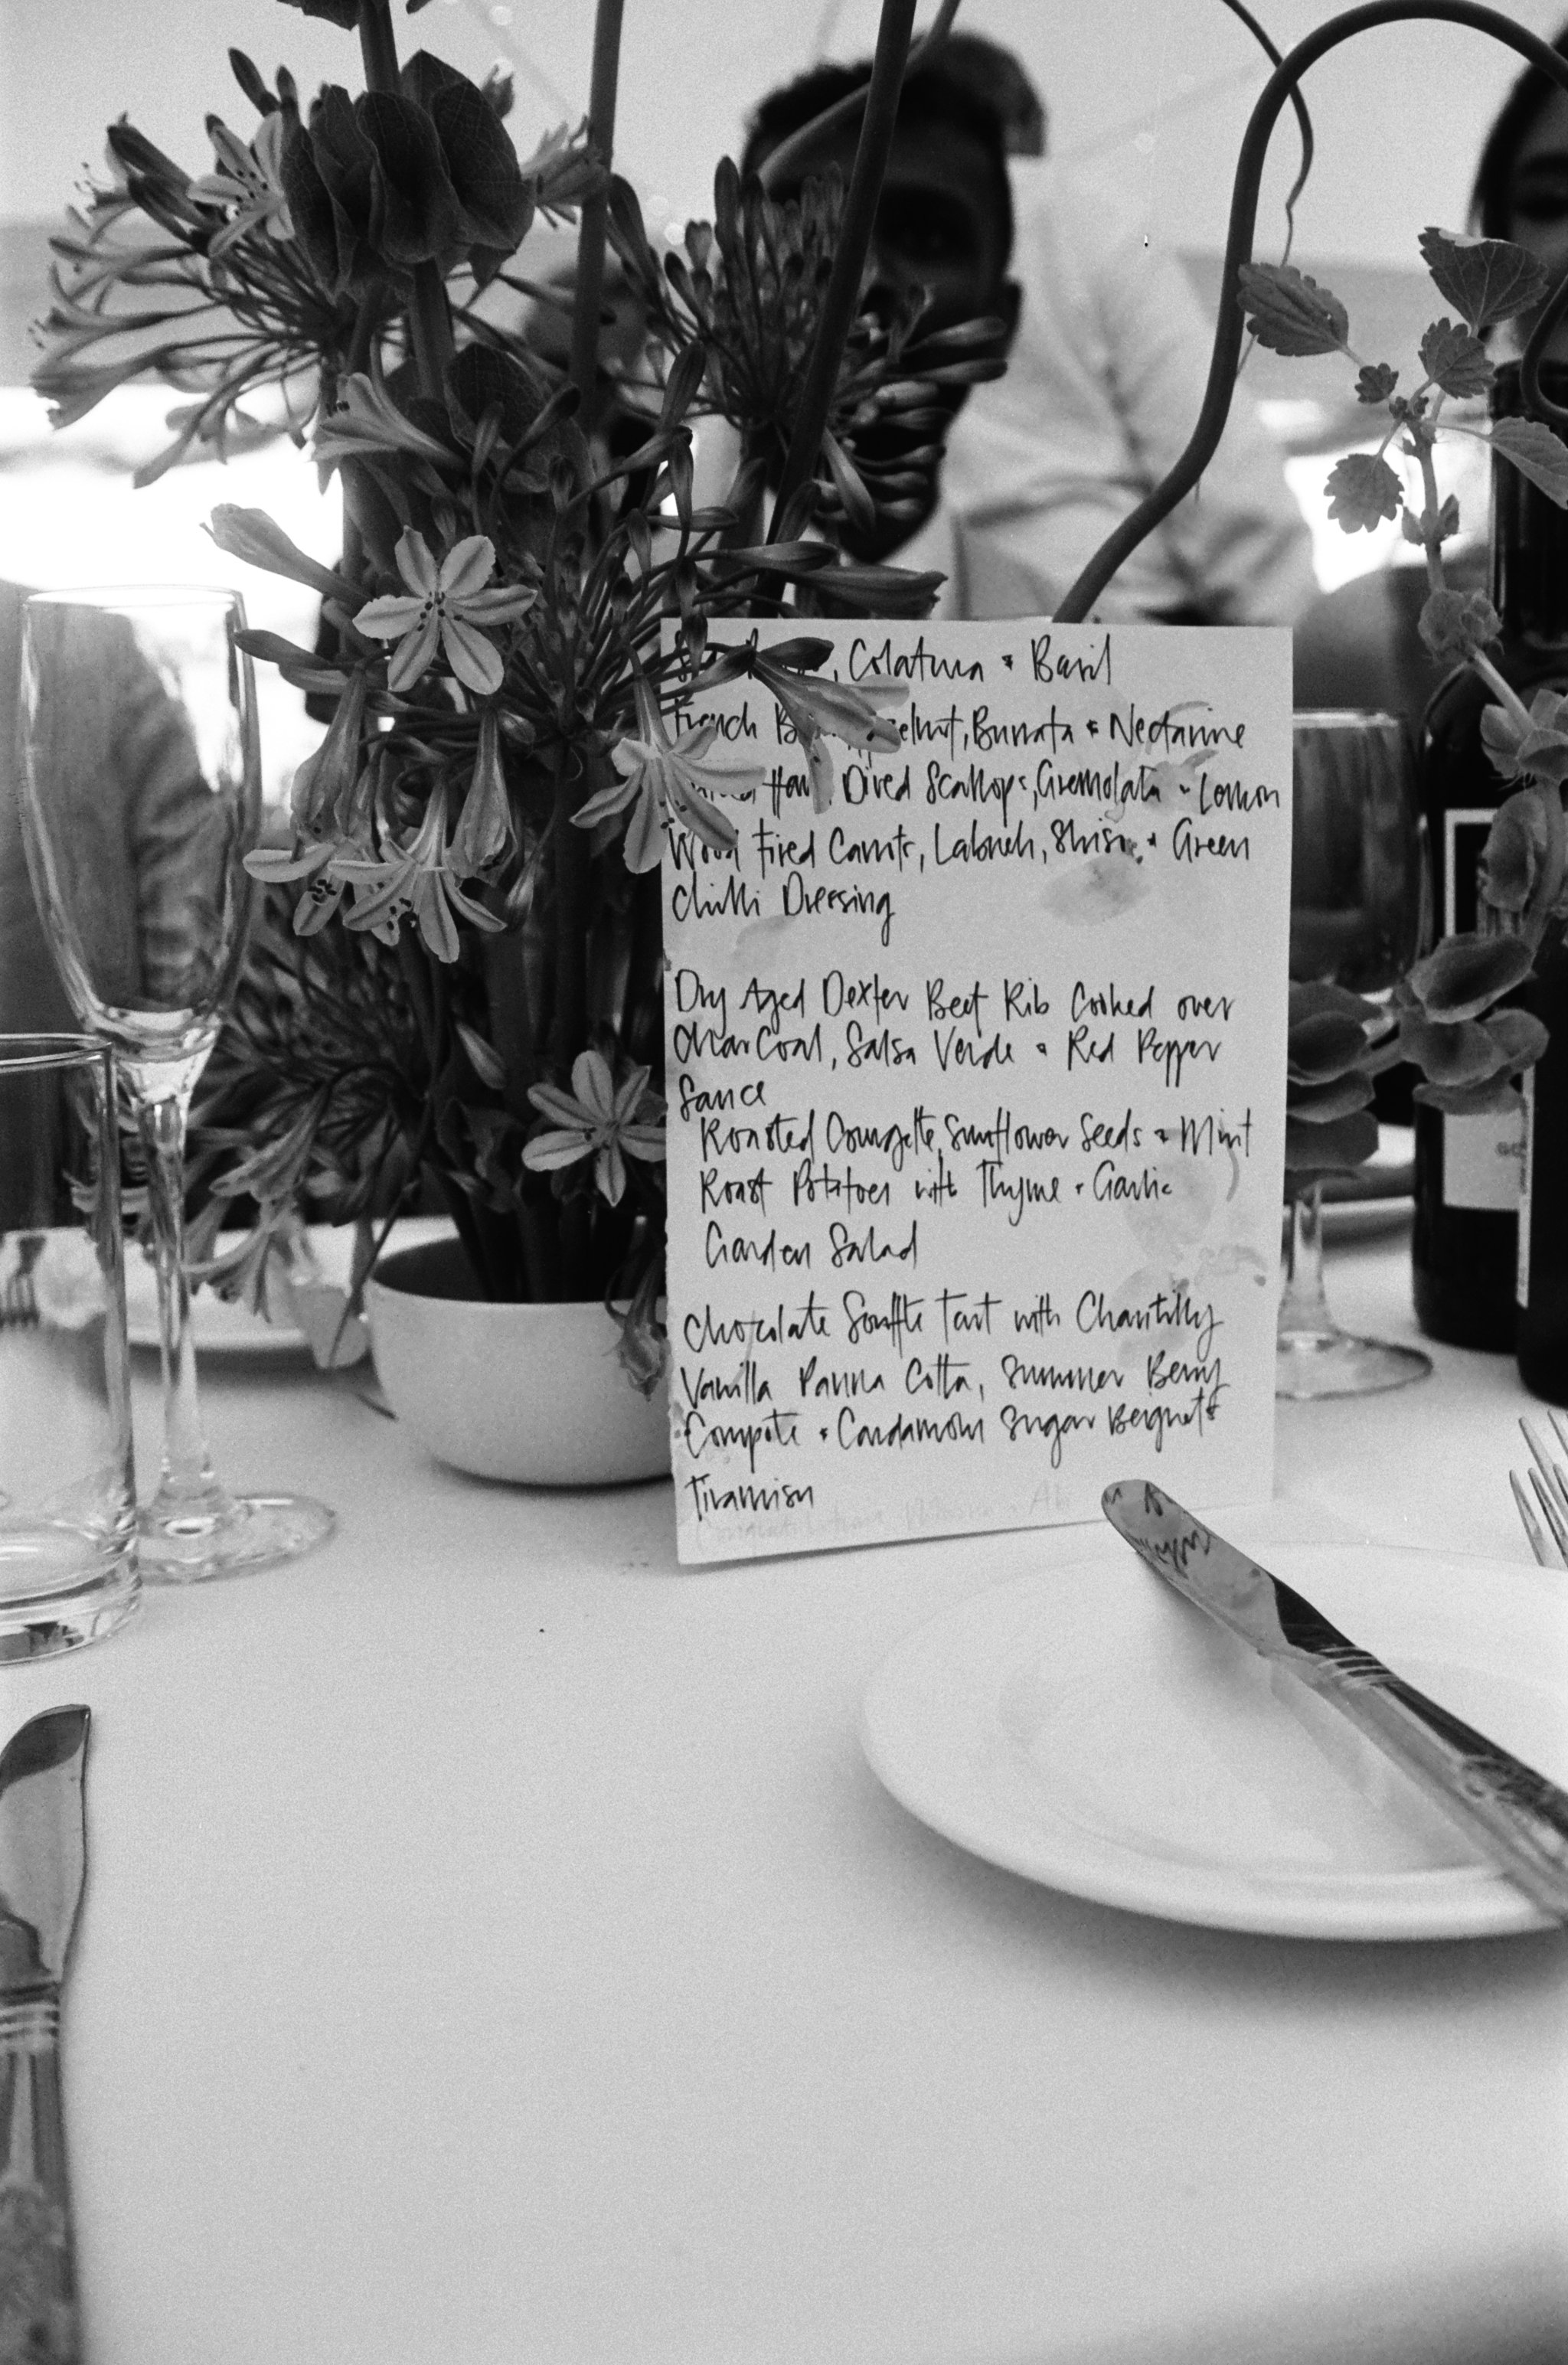 , Colatura + Basil
French Hazelnut, Burrata + Nectarine
Hand Dived Scallops, Gremolata + Lemon
Wood Fired Carrots, Labneh, Shiso + Green
Chilli Dressing
Dry Aged Dexter Beef Rib Cooked over
CharCoal, Salsa Verde + Red Pepper
Sauce
Roasted Courgette, Sunflower Seeds + Mint
Roast Potatoes with Thyme + Garlic
Garden Salad
Chocolate Souffle Tart with Chantilly
Vanilla Panna Cotta, Summer Berry
Compote + Cardamom Sugar Beignets
Tiramisu